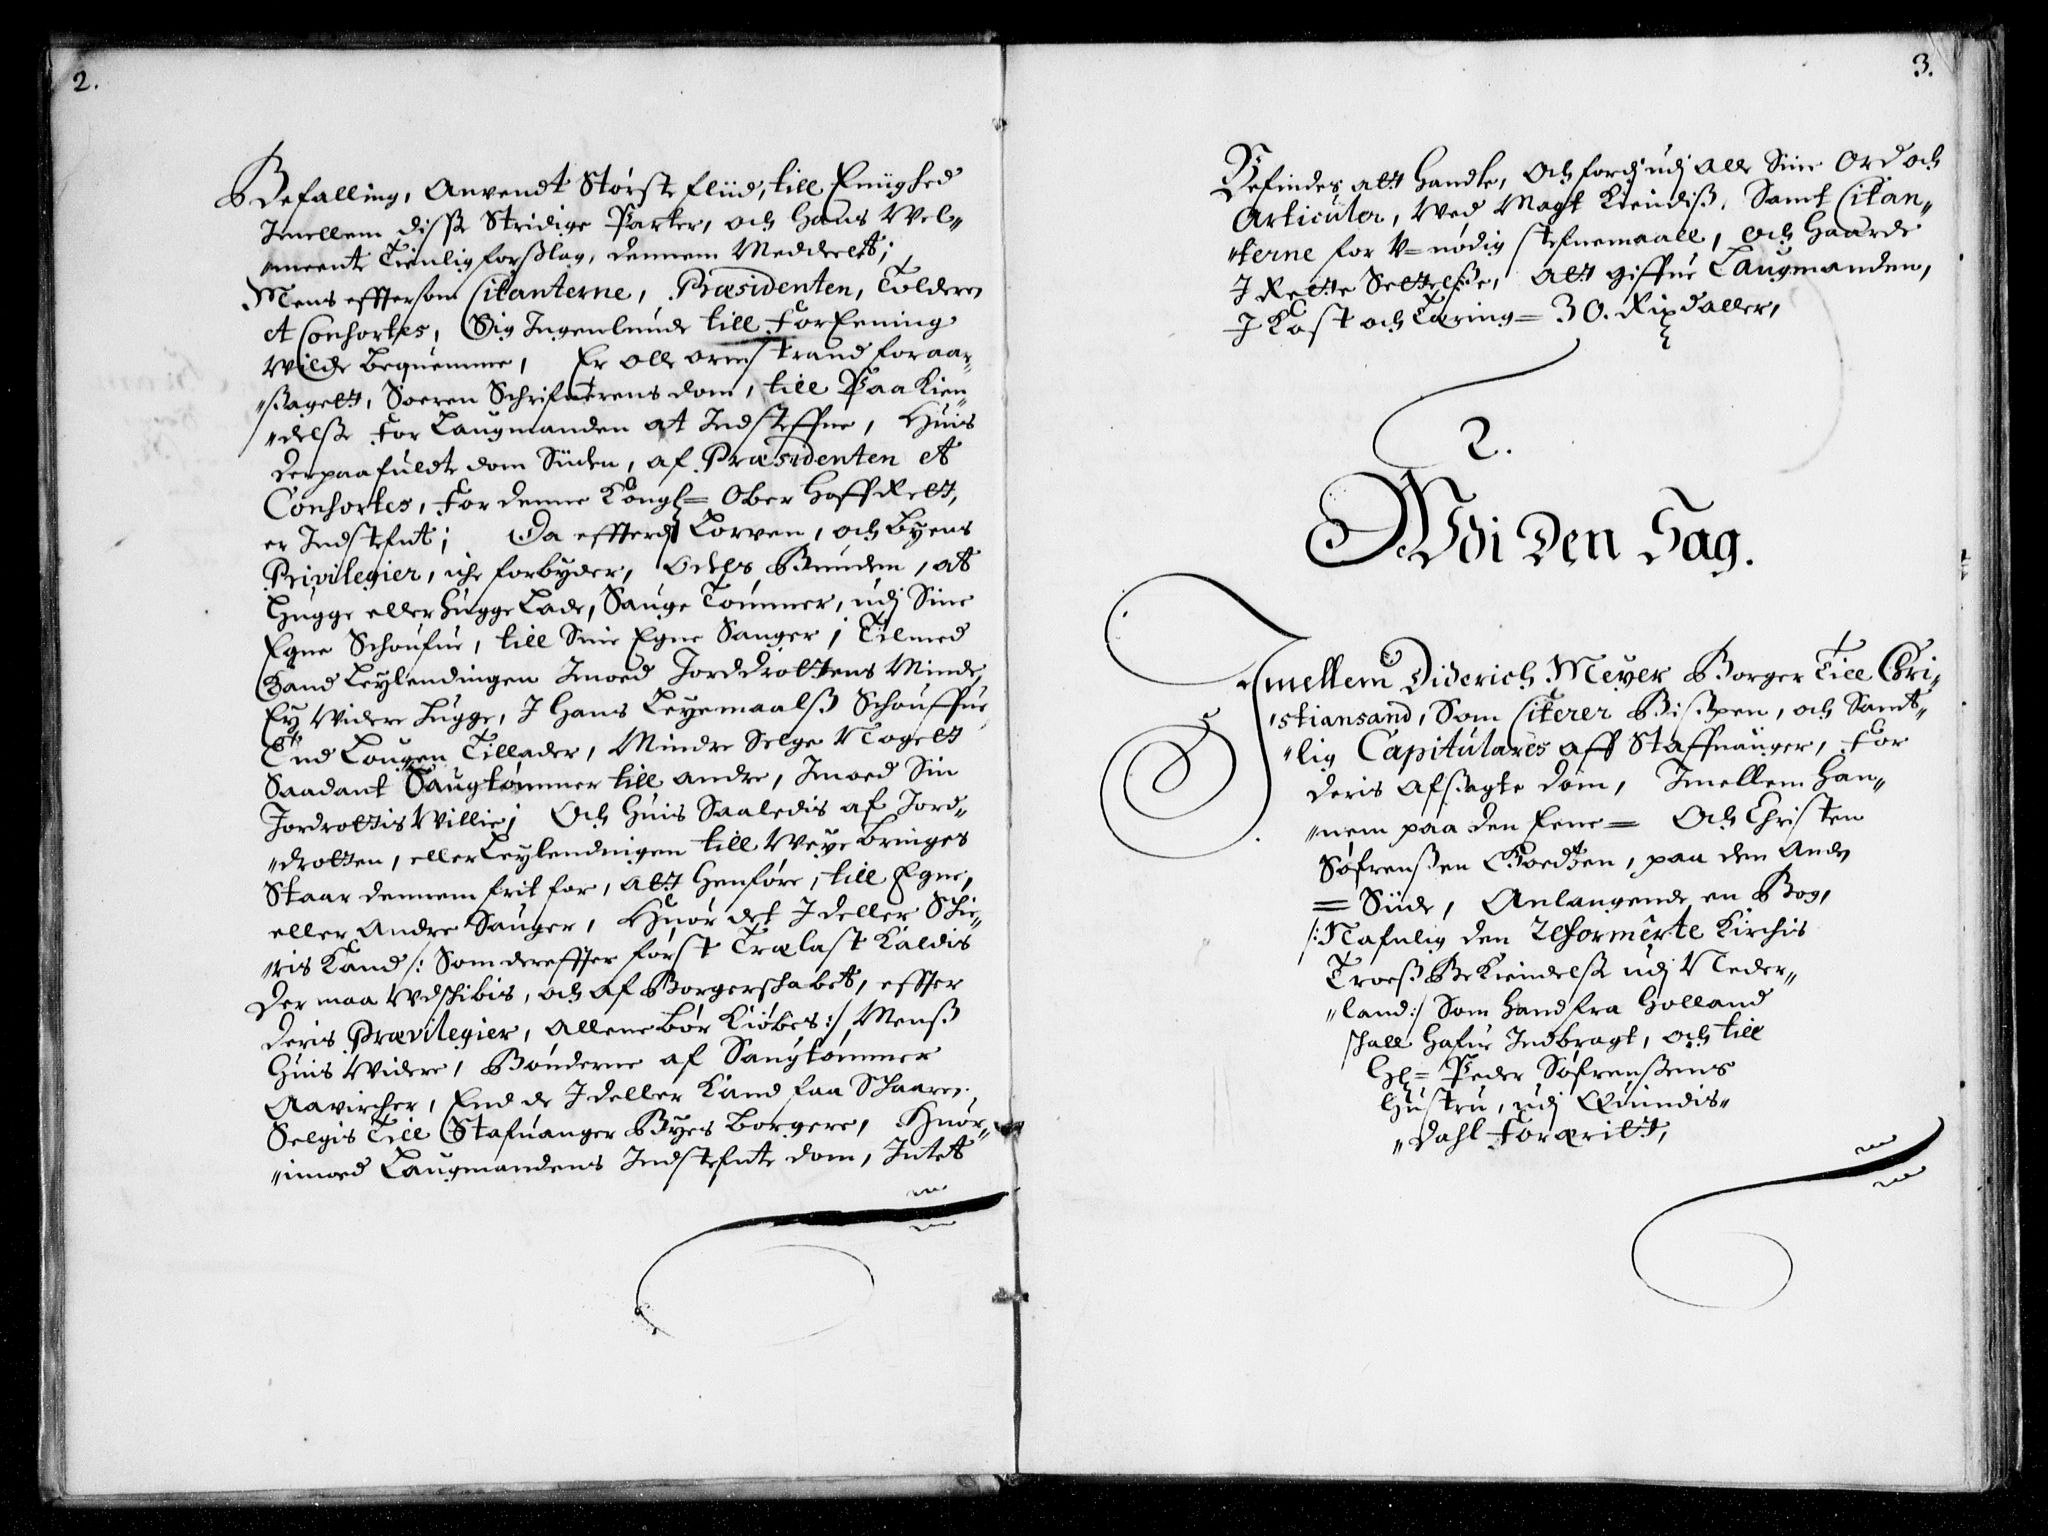 2.
Befalling, Anvendt Størstr fliid, till Eniighed
Imellem disse Stridige Parter, och hans Vel„
„meente Tienlig forsslag, dennem Meddeelt;
Mens efftersom Citanterne, Præsidenten, Tolderen
et Consortes, Sig Ingenlunde till ForEening
Wilde beqvemme, Er olle ormstrand foraar„
„ssagett, Soeren Schrifuerens dom, till Paa Kien„
„delsse For Laugmanden at Indsteffne, Huis
derpaafuldte dom Siiden, af Præsidenten et
Consortes, For denne Kongl= Ober Hoff Rett,
er Indstefnt; Da effterdj Lorven, och Byens
Privilegier, iche forbyder, Odels Bunden, at
Hugge eller hugge Lade, Sauge Tømmer, udj Sine
Egne Schoufue, till Sine Egne Sauger; Tilmed
Kand Leylendingen Imoed Jorddrottens Minde,
Ey Widere hugge, I hans Leyemaalss Schouffue
End Lougen Tillader, Mindre Selge Nogett
Saadant Saugtømmer till andre, Imoed Sin
Jordrottis Willie; Och Huis Saaledis af Jord„
„drotten, eller Leylendingen till Weye bringes
Staar dennem frit for, att Henføre, till Egne,
eller Andre Sauger, Huor det I deller Schie„
„ris Kand /: Som dereffter først Trælast Kaldis
der maa Udschibis, och af Borgerschabet, effter
deris Prævilegier, Allene bør Kiøbes :/ Menss
Huis Widere, Bønderne af Saugtømmer
Aavircher, End de I deller Kand faa Schaaren,
Selgis Till Stafuanger Byes Borgere, Huor„
„imoed Laugmandens Indstefnte dom, Intet
3.
Befindes att Handle, Och fordj udj Alle Sine Ord och
Articuler, Wed Magt Kiendiss, Samt Citan„
„terne for U=nødig stefnemaall, och Haarde
I Rette Settelsse, Att giffue Laugmanden,
I Kost och Tæring= 30. Rixdaller,
2.
Udi Den Sag.
Imellem Diderich Meyer Borger Till Chri„
„stiansand, Som Citerer Bispen, och Samt„
„lig Capitulares aff Staffuanger, For
deris Afsagte Dom, Imellem Han„
„nem paa den Eene= Och Christen
Søfrenssen Boedtzen, paa den Anden
= Siide, Anlangende en Bog,
/: Nafnlig den Reformerte Kirchis
Troess BeKiendelsse udj Neder„
„land :/ Som Hand fra Holland
schall Hafue Indbragt, och till
Hl= Peder Søfrenssens
Hustru, udj Quindis„
„dahl Foræritt,